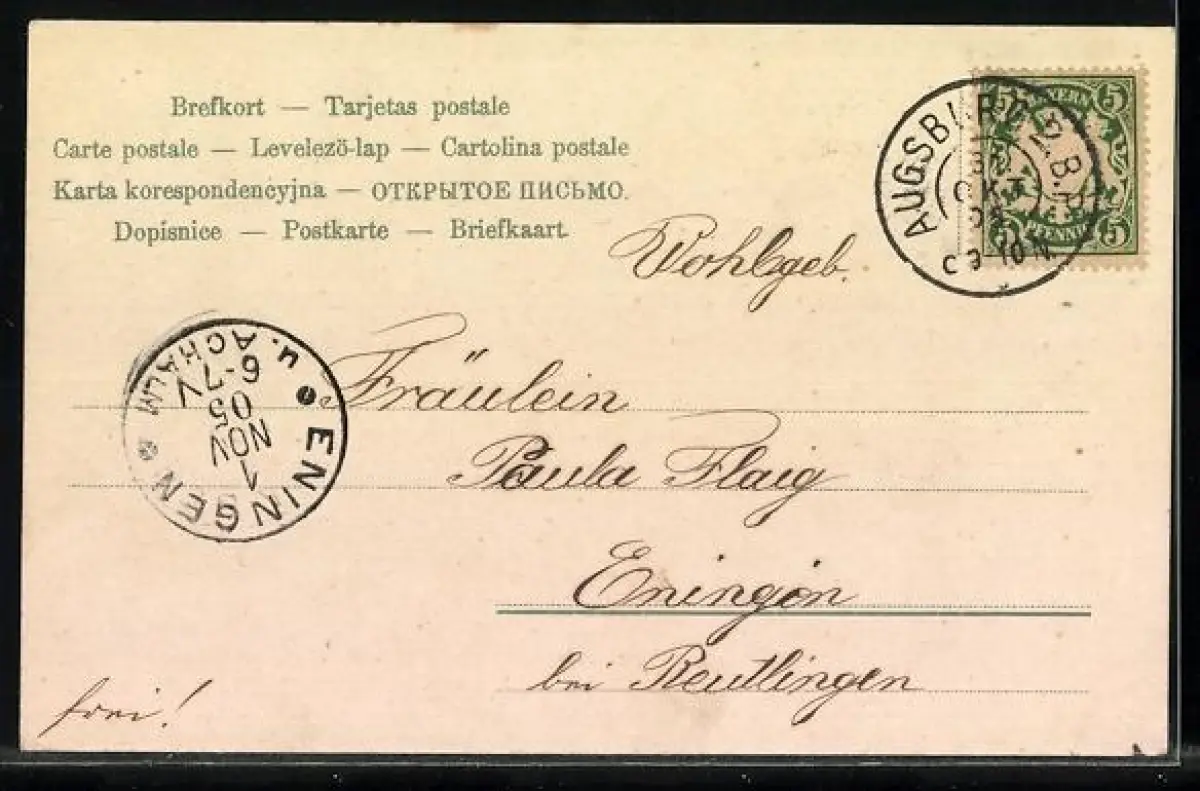 Brefkort — Tarjetas postale
Carte postale — Levelezö-lap — Cartolina postale
Karta korespondencyjna — ОТКРЫТОЕ ПИСЬМО.
Dopisnice — Postkarte — Briefkaart.
AUGSBURG 2. B.P.
OKT
C 9-10 N.
5 BAYERN 5
5 PFENNIG 5
Wohlgeb.
Fräulein
Paula Flaig
Eningen
bei Reutlingen
frei!
ENINGEN
u. ACHALM
1
NOV
05
6-7V